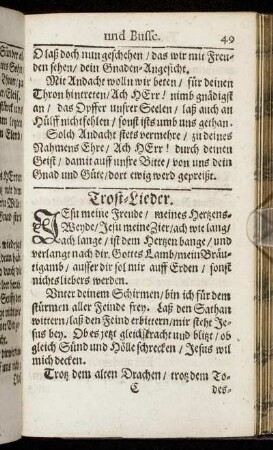 und Busse.
49
O laß doch nun geschehen / das wir mit Freu-
den sehen / dein Gnaden-Angesicht.
Mit Andacht wolln wir beten / für deinen
Thron hintreten / Ach HErr! nimb gnädigst
an / das Opffer unsrer Seelen / laß auch an
Hülff nicht fehlen / sonst ists umb uns gethan.
Solch Andacht stets vermehre / zu deines
Nahmens Ehre / Ach HErr! durch deinen
Geist / damit auff unsre Bitte / von uns dein
Gnad und Güte / dort ewig werd gepreißt.
Trost-Lieder.
JEsu meine Freude / meines Hertzens-
Weyde / Jesu meine Zier / ach wie lang /
ach lange / ist dem Hertzen bange / und
verlange nach dir. Gottes Lamb / mein Bräu-
tigamb / ausser dir sol mir auff Erden / sonst
nichts liebers werden.
Unter deinem Schirmen / bin ich für dem
stürmen aller Feinde frey. Laß den Sathan
wittern / laß den Feind erbittern / mir steht Je-
sus bey. Ob es jetzt gleich kracht und blitzt / ob
gleich Sünd und Hölle schrecken / Jesus wil
mich decken.
Trotz dem alten Drachen / trotz dem To-
C
des-